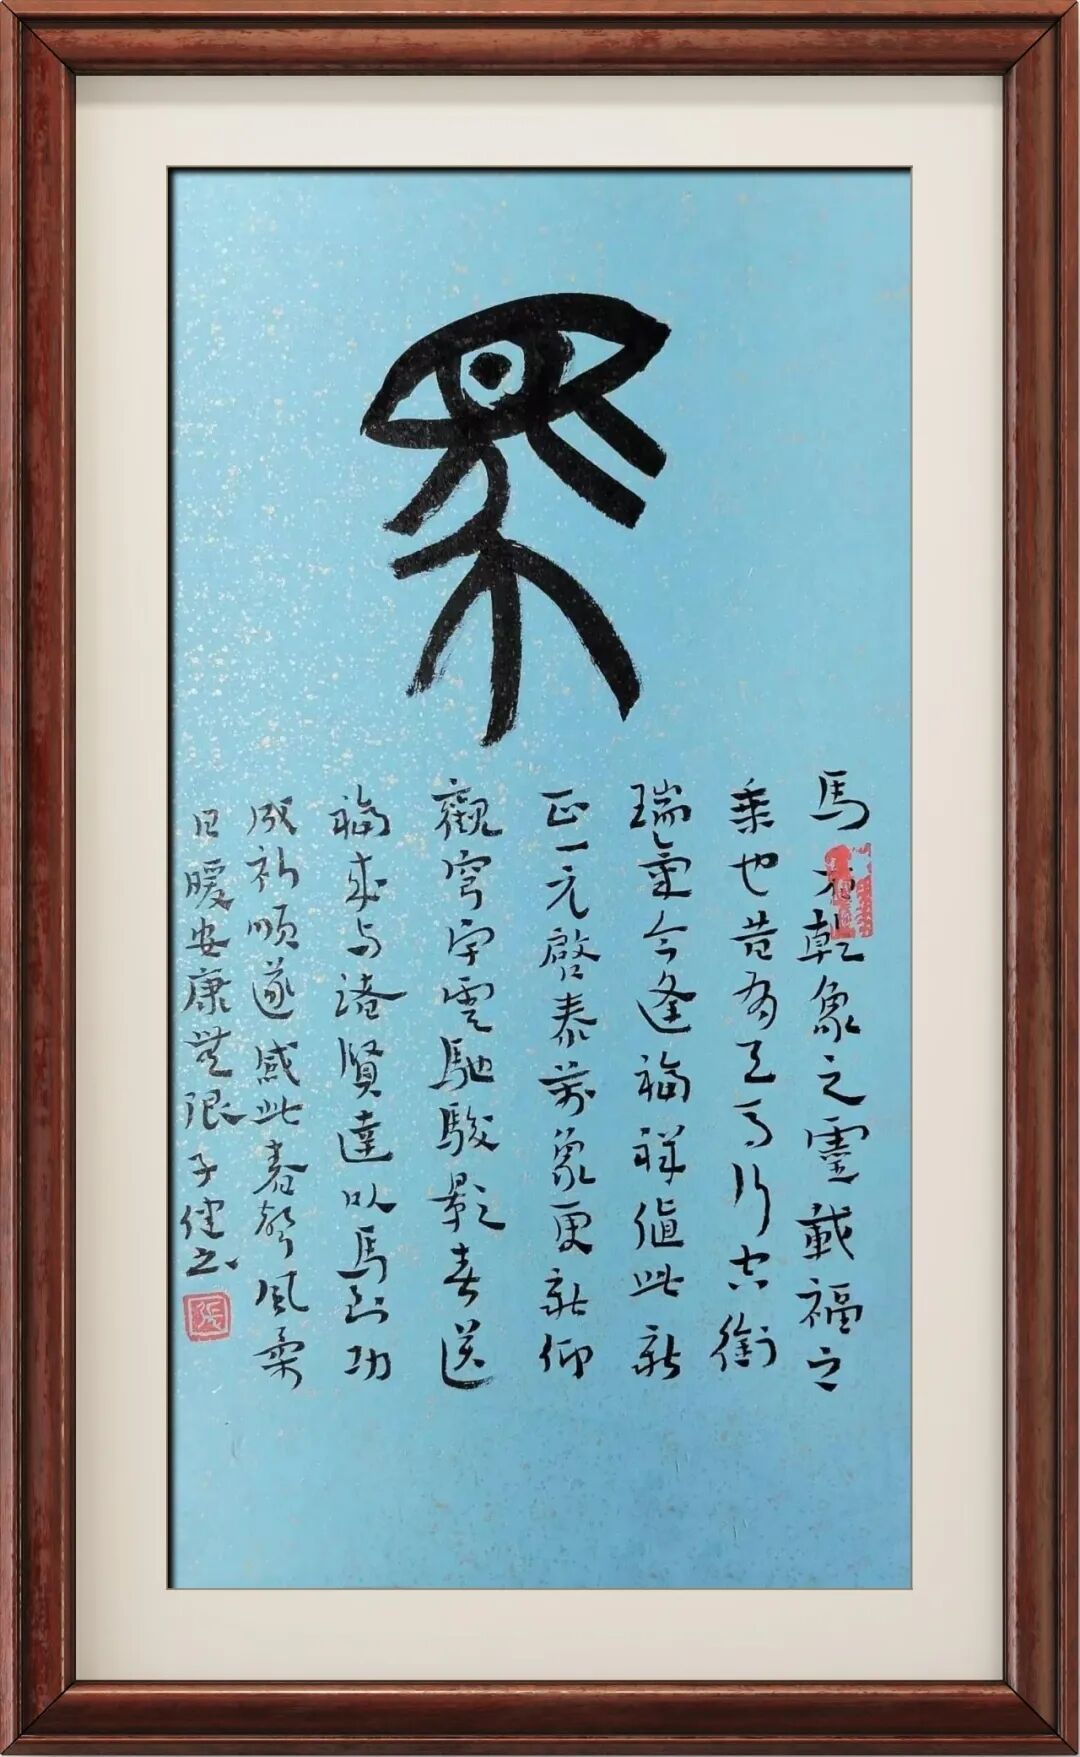 馬
馬乾象之靈載福之
乘也昔有天馬行空銜
瑞氣今逢福祥值此新
正一元啓泰萬象更新仰
觀穹宇雲馳駿影春送
福來与諸賢達以馬到功
成祈順遂感此春馨風柔
日暖安康無限子健書
張